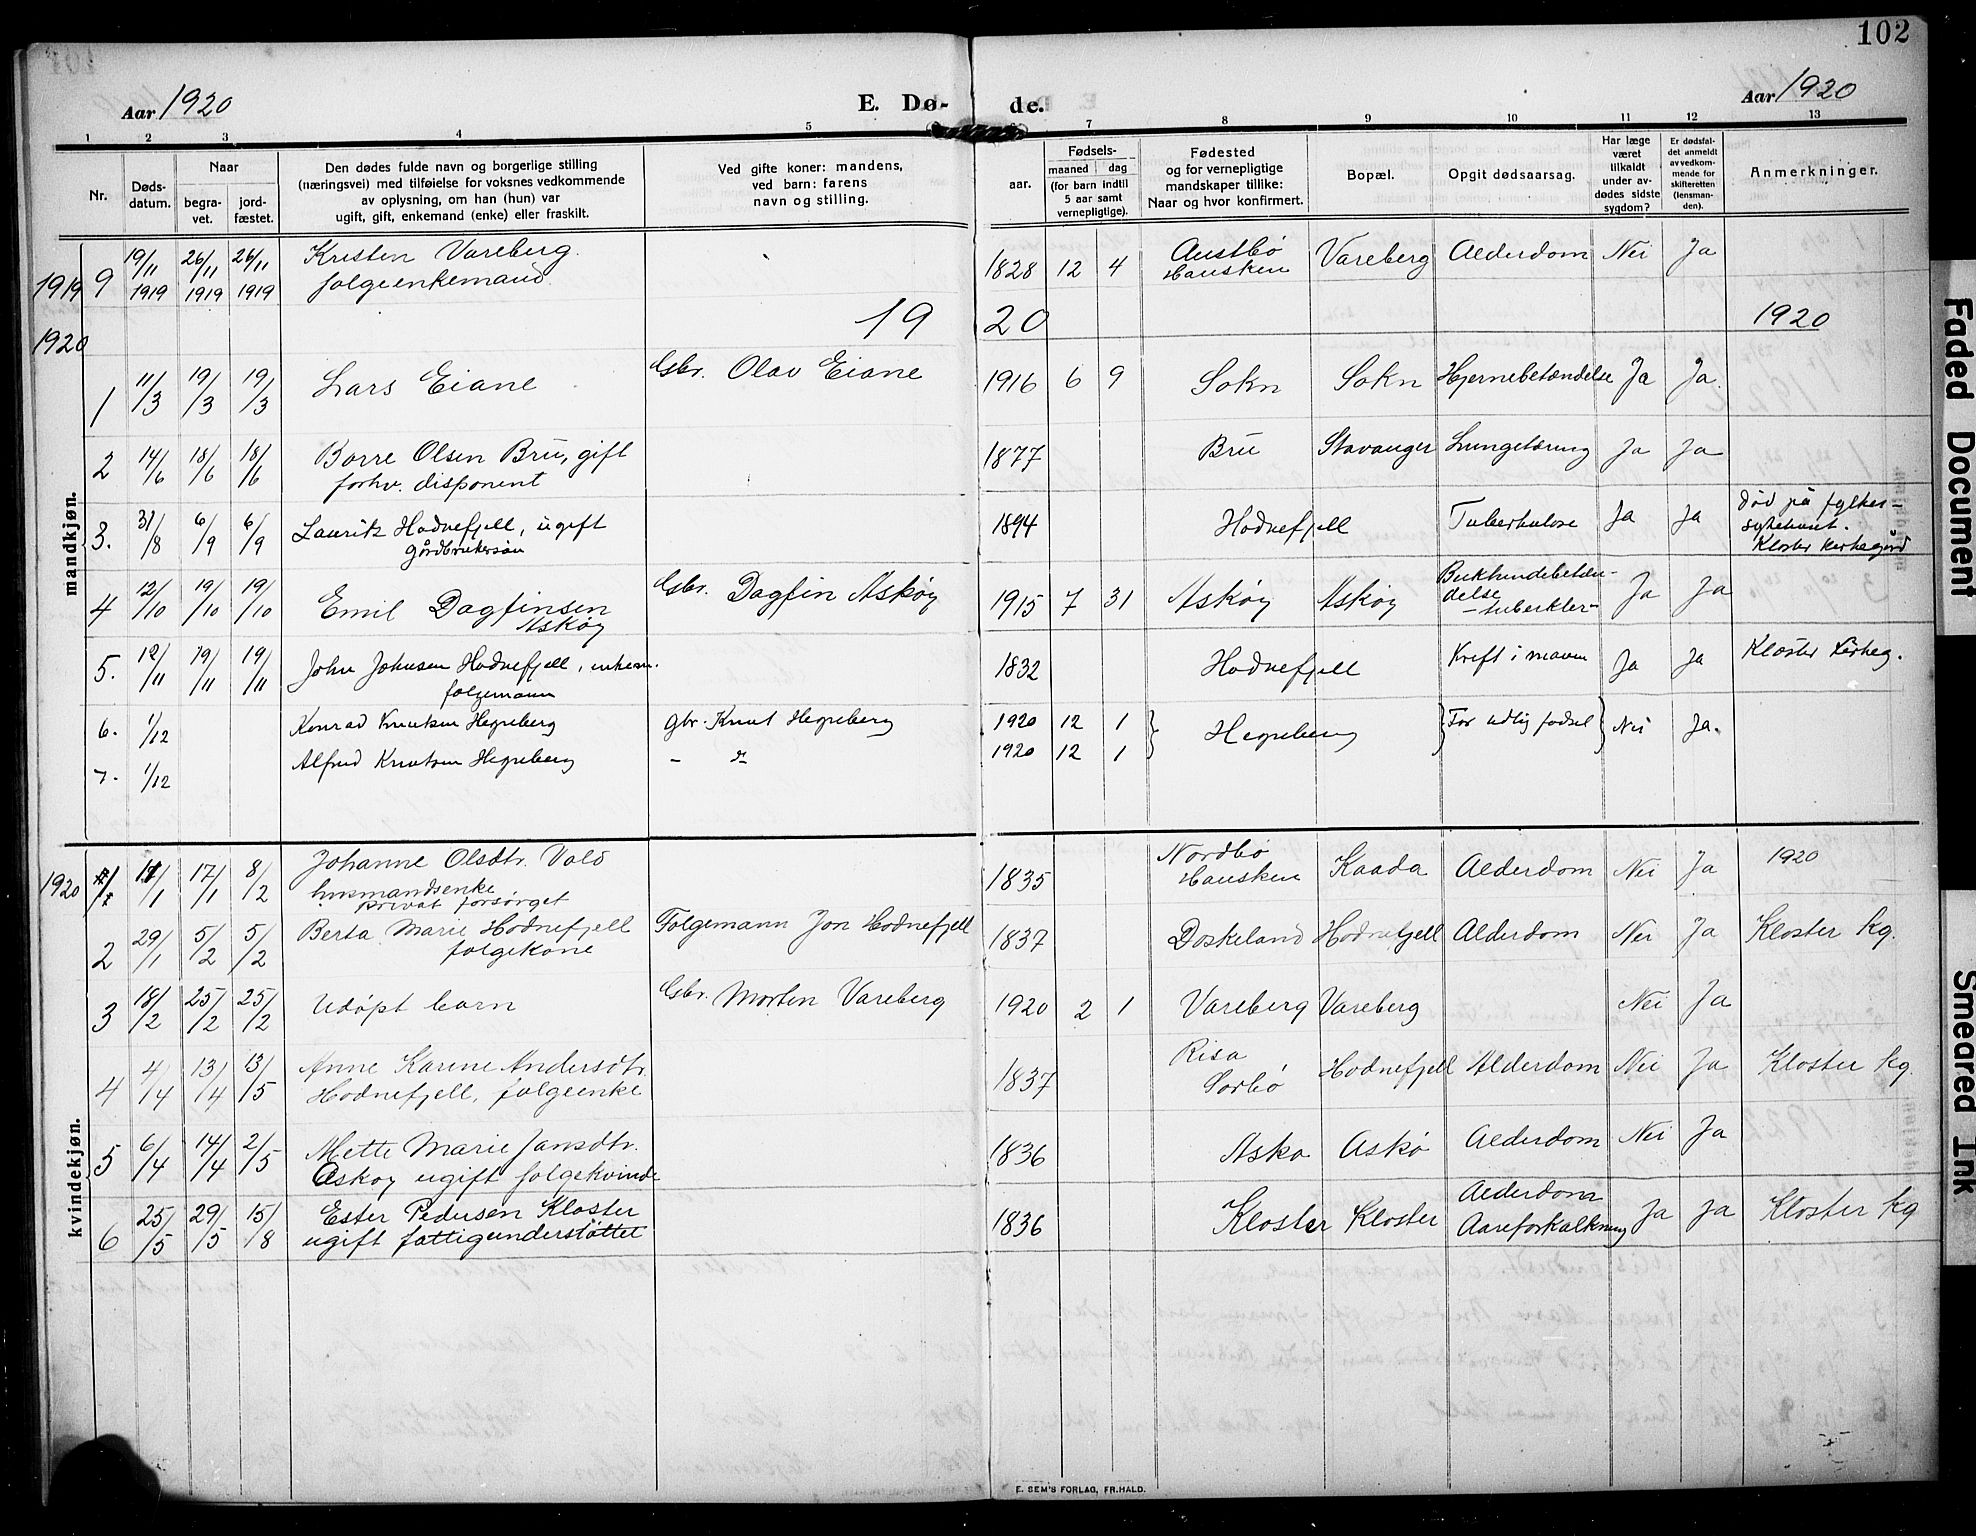 102
Aar 1920
E. Dø- de.
Aar 1920
1 2 3 4 5 7 8 9 10 11 12 13
Nr.
Døds-
datum.
Naar
begra-
vet.
jord-
fæstet.
Den dødes fulde navn og borgerlige stilling
(næringsvei) med tilføielse for voksnes vedkommende
av oplysning, om han (hun) var
ugift, gift, enkemand (enke) eller fraskilt.
Ved gifte koner: mandens,
ved barn: farens
navn og stilling.
Fødsels-
aar.
maaned dag
(for barn indtil
5 aar samt
vernepligtige).
Fødested
og for vernepligtige
mandskaper tillike:
Naar og hvor konfirmert.
Bopæl.
Opgit dødsaarsag.
Har læge
været
tilkaldt
under av-
dødes sidste
sygdom?
Er dødsfal-
det anmeldt
av vedkom-
mende for
skifteretten
(lensman-
den).
Anmerkninger.
mandkjøn.
1919 9 19/11 1919 26/11 1919 26/11 1919 Kristen Vareberg. 1828 12 4 Austbø Vareberg Alderdom Nei Ja
folgeenkemand Hausken
1920 19 20 1920
1 11/3 19/3 19/3 Lars Eiane Gbr. Olav Eiane 1916 6 9 Sokn Sokn Hjernebetændelse Ja Ja.
2 14/6 18/6 18/6 Borre Olsen Bru, gift 1877 Bru Stavanger Lungetæring Ja Ja
forhv. disponent
3. 31/8 6/9 6/9 Laurits Hodnefjell, ugift 1894 Hodnefjell Tuberkulose Ja Ja Død på fylkes-
gårdbrukersøn
Kloster kirkegård
4 12/10 19/10 19/10 Emil Dagfinsen Gbr. Dagfin Askøy 1915 7 31 Askøy Askøy Bukhindebetæn-
delse Ja Ja
Askøy -tuberkler-
5. 12/11 19/11 19/11 John Johnsen Hodnefjell, enkem. 1832 Hodnefjell Kreft i maven Ja Ja Kloster kirkeg.
folgemann
6. 1/12 Konrad Knutsen Hegreberg gbr. Knut Hegreberg 1920 12 1 Hegreberg For tidlig fødsel Nei Ja.
7. 1/12 Alfred Knutsen Hegreberg - 1920 12 1
kvindekjøn.
1920 11/1 17/1 8/2 Johanne Olsdtr. Vold 1835 Nordbø Kaada Alderdom Nei Ja 1920
husmandsenke Hausken
privat forsørget
2 29/1 5/2 5/2 Berta Marie Hodnefjell Folgemann Jon Hodnefjell 1837 Doskeland Hodnefjell Alderdom Nei Ja Kloster kg.
folgekone
3 18/2 25/2 25/2 Udøpt barn Gbr. Morten Vareberg 1920 2 1 Vareberg Vareberg Nei Ja
4 4/4 13/4 13/5 Anne Karine Andersdtr. 1837 Risa Hodnefjell Alderdom Nei Ja Kloster kg.
Hodnefjell, folgeenke Sorbø
5 6/4 14/4 2/5 Mette Marie Jansdtr. 1836 Asko Askø Alderdom Nei Ja
Askoy ugift folgekvinde
6 25/5 29/5 15/8 Ester Pedersen Kloster 1836 Kloster Kloster Alderdom Ja Ja Kloster kg
ugift fattigunderstøttet Aareforkalkning
E. SEM'S FORLAG, FR.HALD.
Faded Document
Smeared Ink